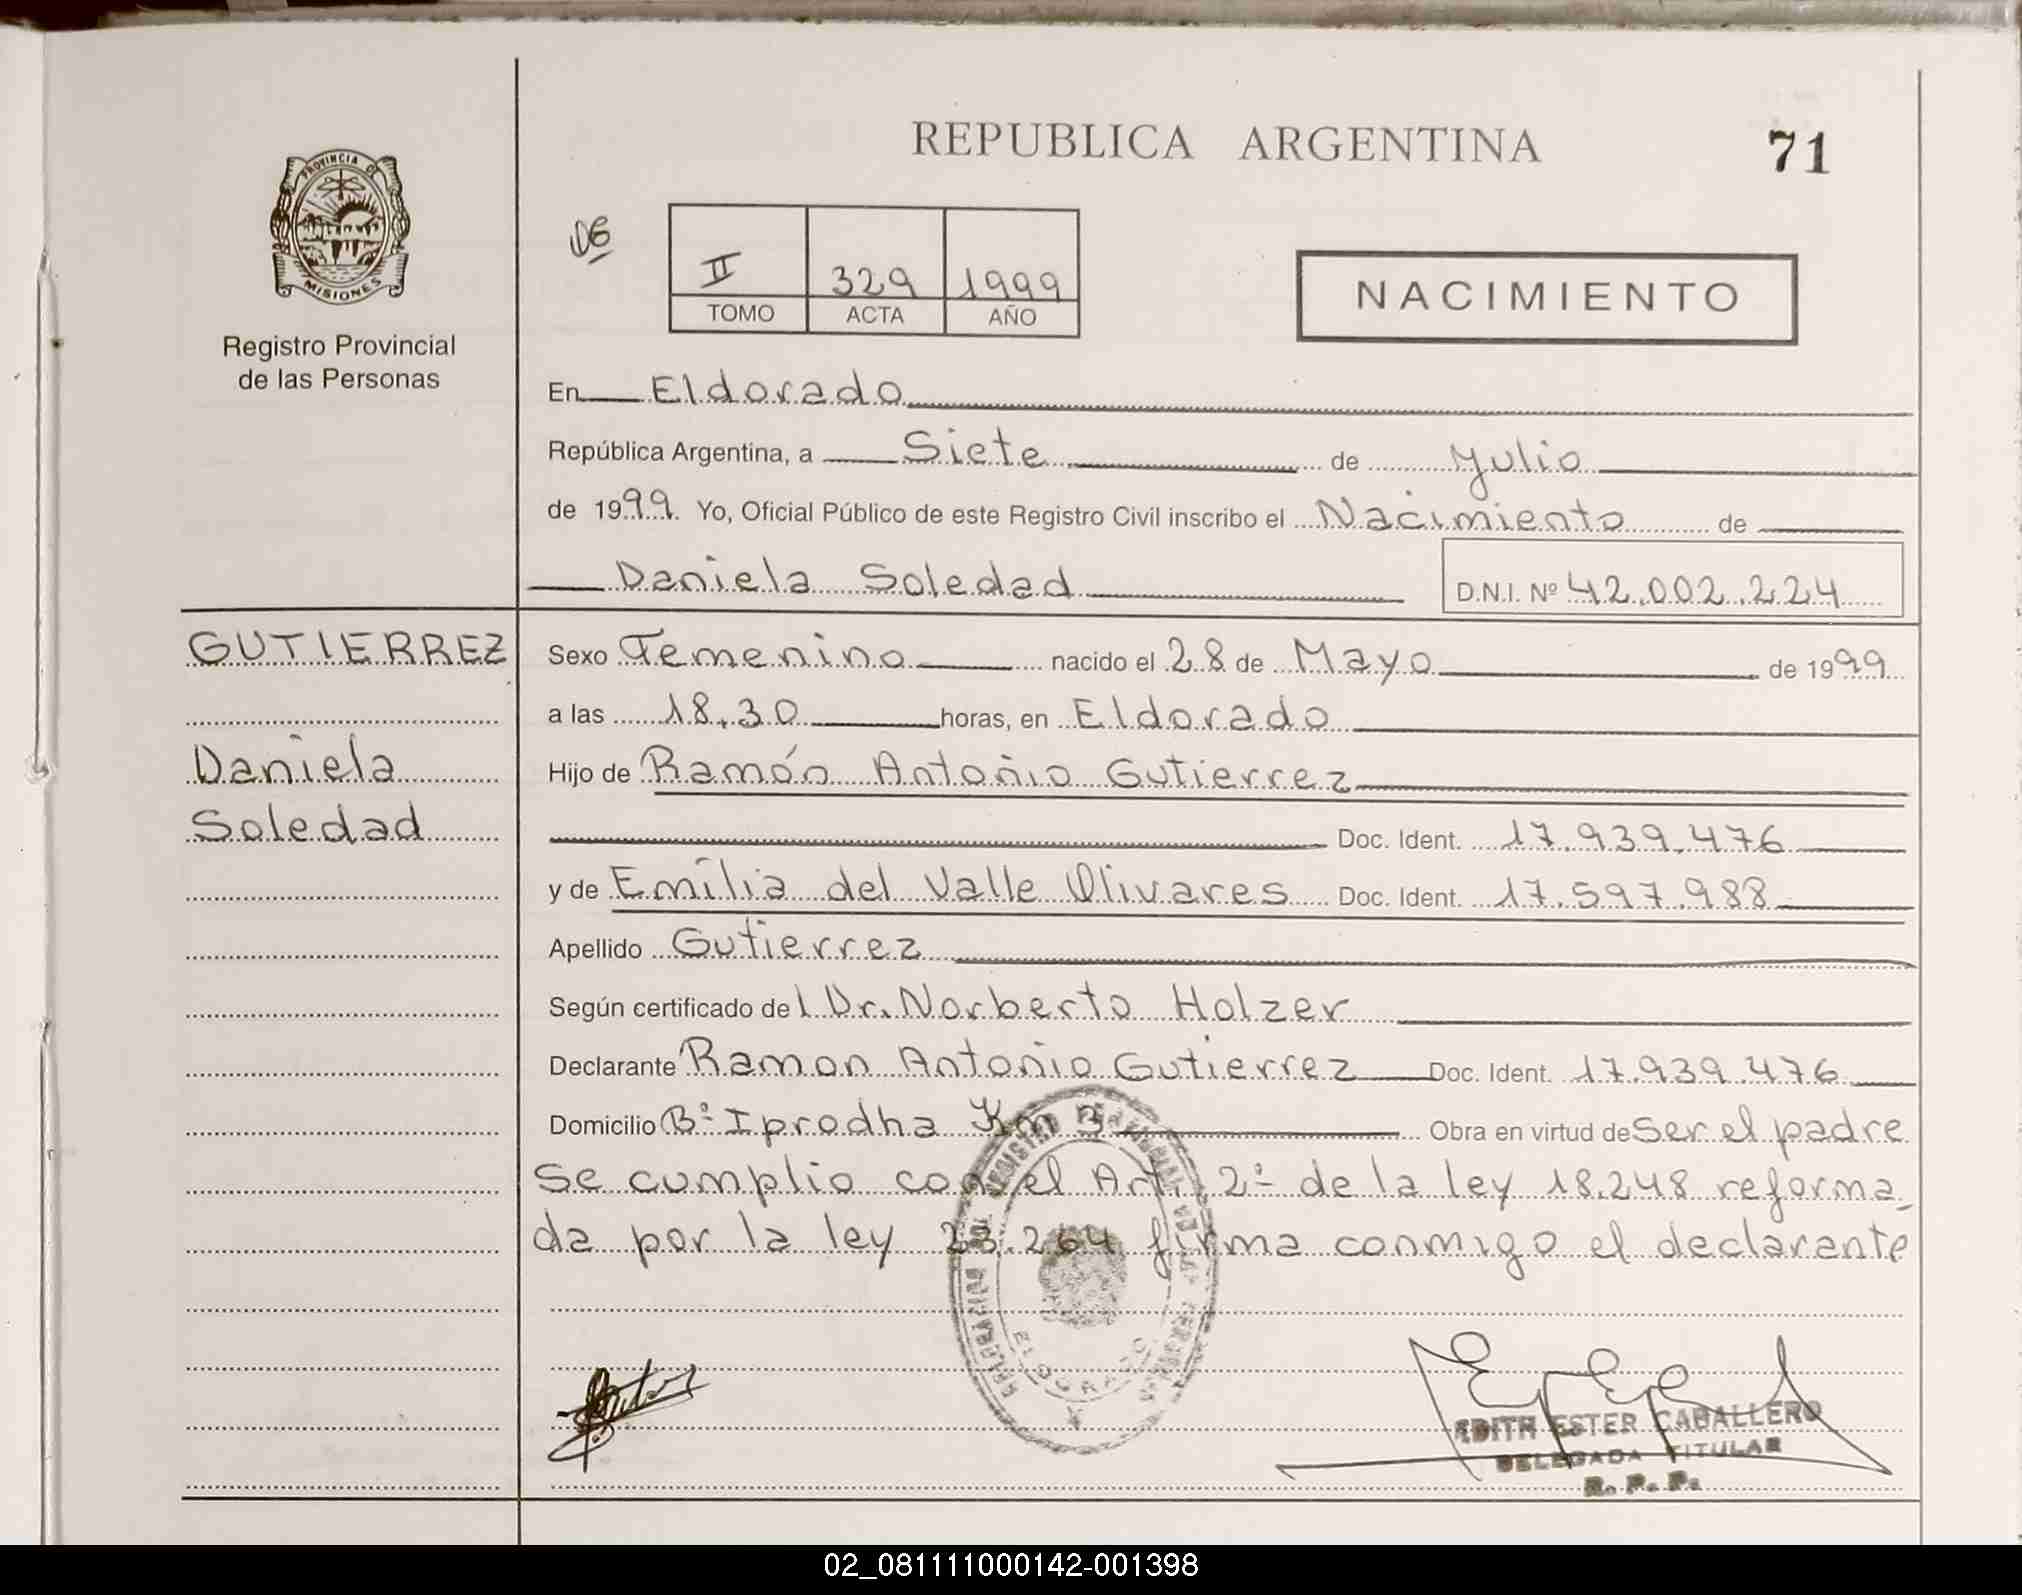 REPUBLICA ARGENTINA
71
PROVINCIA DE
MISIONES
Registro Provincial
de las Personas
II 329 1999
TOMO ACTA AÑO
NACIMIENTO
En Eldorado
República Argentina, a Siete de Julio
de 1999. Yo, Oficial Público de este Registro Civil inscribo el Nacimiento de
Daniela Soledad D.N.I. Nº 42.002.224
GUTIERREZ
Daniela
Soledad
Sexo Femenino nacido el 28 de Mayo de 1999
a las 18.30 horas, en Eldorado
Hijo de Ramón Antonio Gutierrez
Doc. Ident. 17.939.476
y de Emilia del Valle Olivares Doc. Ident. 17.597.988
Apellido Gutierrez
Según certificado del Dr. Norberto Holzer
Declarante Ramon Antonio Gutierrez Doc. Ident. 17.939.476
Domicilio Bº Iprodha Km 3 Obra en virtud de Ser el padre
Se cumplio con el Art. 2º de la ley 18.248 reforma_
da por la ley 23.264 firma conmigo el declarante
EDITH ESTER CABALLERO
DELEGADA TITULAR
R. P. P.
02_081111000142-001398